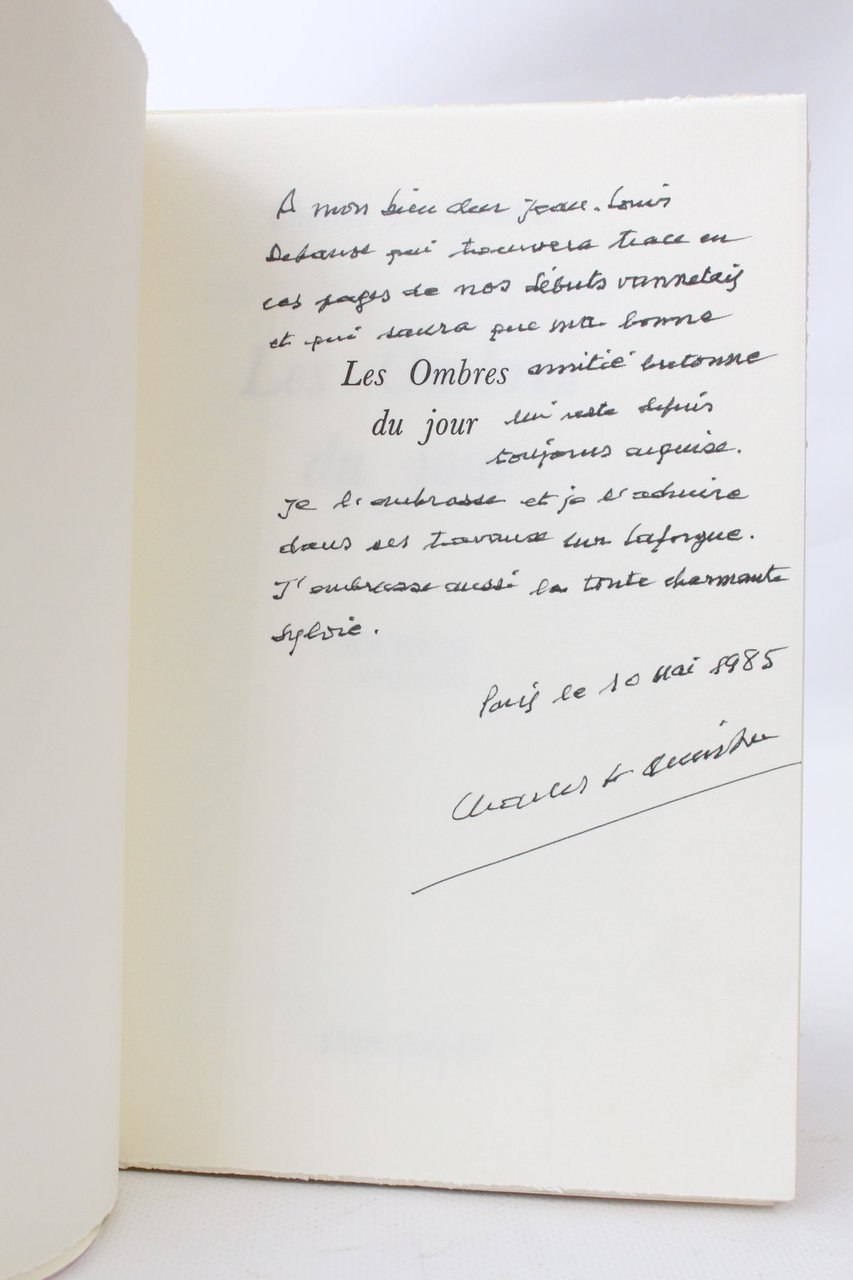 A mon bien cher Jean-Louis
Debauve qui trouvera trace en
ces pages de nos débuts vannetais
et qui saura que ma bonne
Les Ombres amitié bretonne
du jour lui reste depuis
toujours acquise.
Je l'embrasse et je l'admire
dans ses travaux sur Laforgue.
J'embrasse aussi la toute charmante
Sylvie.
Paris le 10 Mai 1985
Charles Le Quintrec